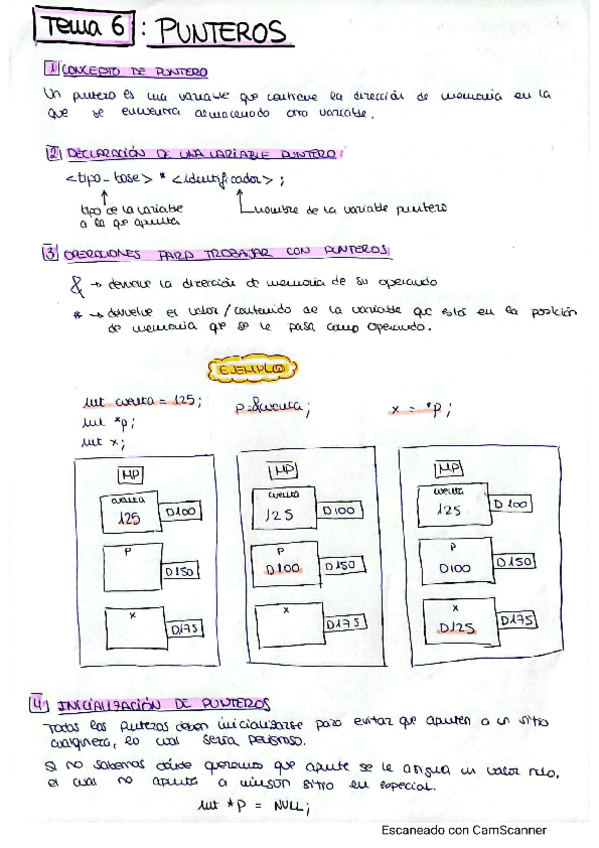 Tema 6 : PUNTEROS
1 CONCEPTO DE PUNTERO
Un puntero es una variable que contiene la dirección de memoria en la
que se encuentra almacenado otra variable.
2 DECLARACIÓN DE UNA VARIABLE PUNTERO:
<tipo-base> * <identificador> ;
tipo de la variable
a la que apunta
nombre de la variable puntero
3 OPERACIONES PARA TRABAJAR CON PUNTEROS
& → devuelve la dirección de memoria de su operando
* → devuelve el valor/contenido de la variable que está en la posición
de memoria que se le pasa como operando.
EJEMPLO
int cuenta = 125;
int *p;
int x;
p=&cuenta;
x = *p;
MP
cuenta
125
D100
P
D150
x
D175
MP
cuenta
125
D100
P
D100
D150
x
D175
MP
cuenta
125
D100
P
D100
D150
x
D125
D175
4 INICIALIZACIÓN DE PUNTEROS
Todos los punteros deben inicializarse para evitar que apunten a un sitio
cualquiera, lo cual sería peligroso.
Si no sabemos dónde queremos que apunte se le asigna un valor nulo,
el cual no apunta a ningún sitio en especial.
int *P = NULL;
Escaneado con CamScanner